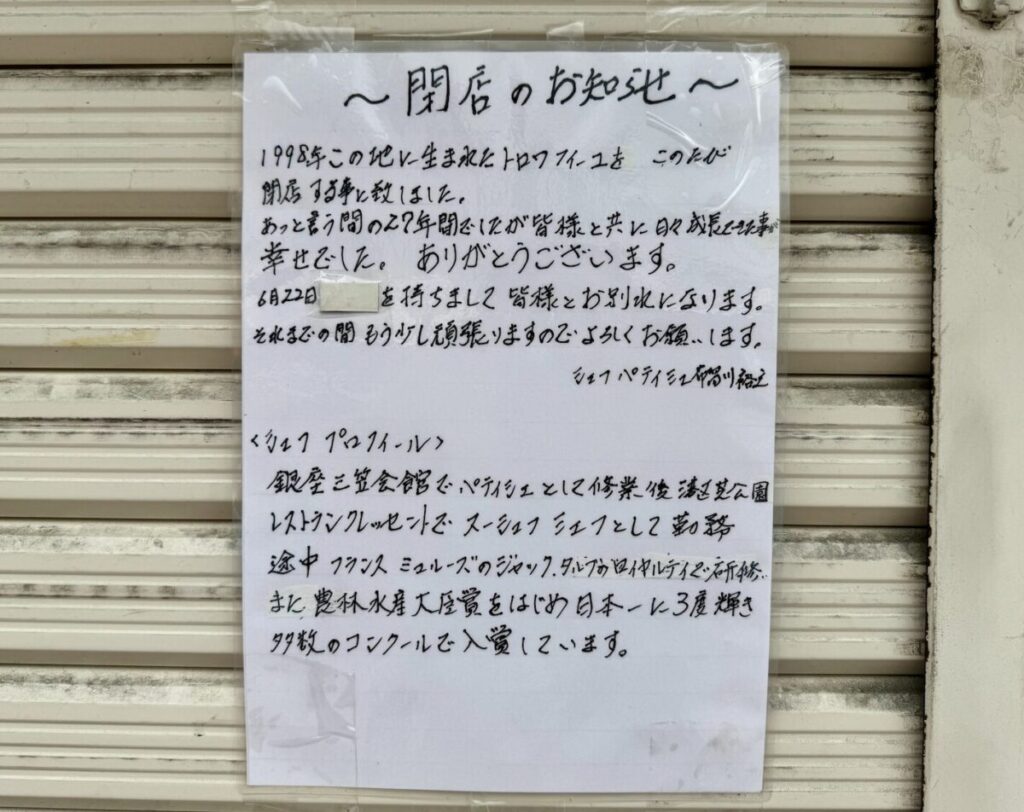 ～閉店のお知らせ～
1998年この地に生まれたトロワフィーユを このたび
閉店する事に致しました。
あっと言う間の27年間でしたが皆様と共に日々成長できた事が
幸せでした。 ありがとうございます。
6月22日 を持ちまして 皆様とお別れになります。
それまでの間 もう少し頑張りますのでよろしくお願いします。
シェフパティシエ
<シェフ プロフィール>
銀座三笠会館でパティシエとして修業後 港区芝公園
レストランクレッセントで スーシェフ シェフとして勤務
途中 フランス ミュルーズのジャック、 ロイヤルティで研修、
また 農林水産大臣賞をはじめ日本一に3度輝き
多数のコンクールで入賞しています。